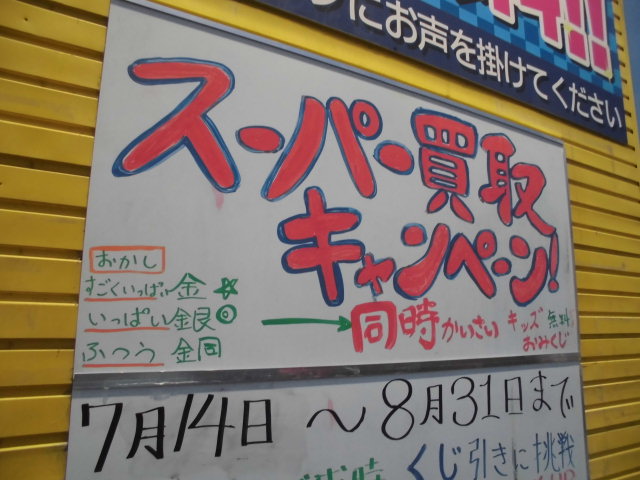 にお声を掛けてください
スーパー買取
キャンペーン!
おかし
すごくいっぱい金
いっぱい銀
ふつう 銅
同時かいさい
キッズ無料
おみくじ
7月14日 〜 8月31日まで
くじ引きに挑戦